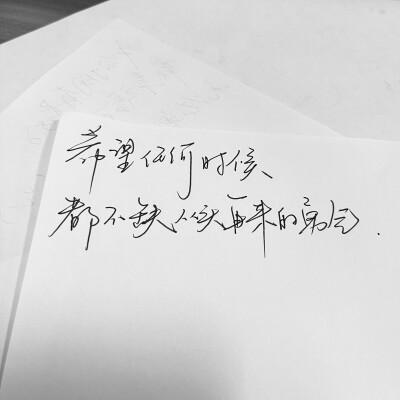 希望任何时候、
都不缺从头再来的勇气.